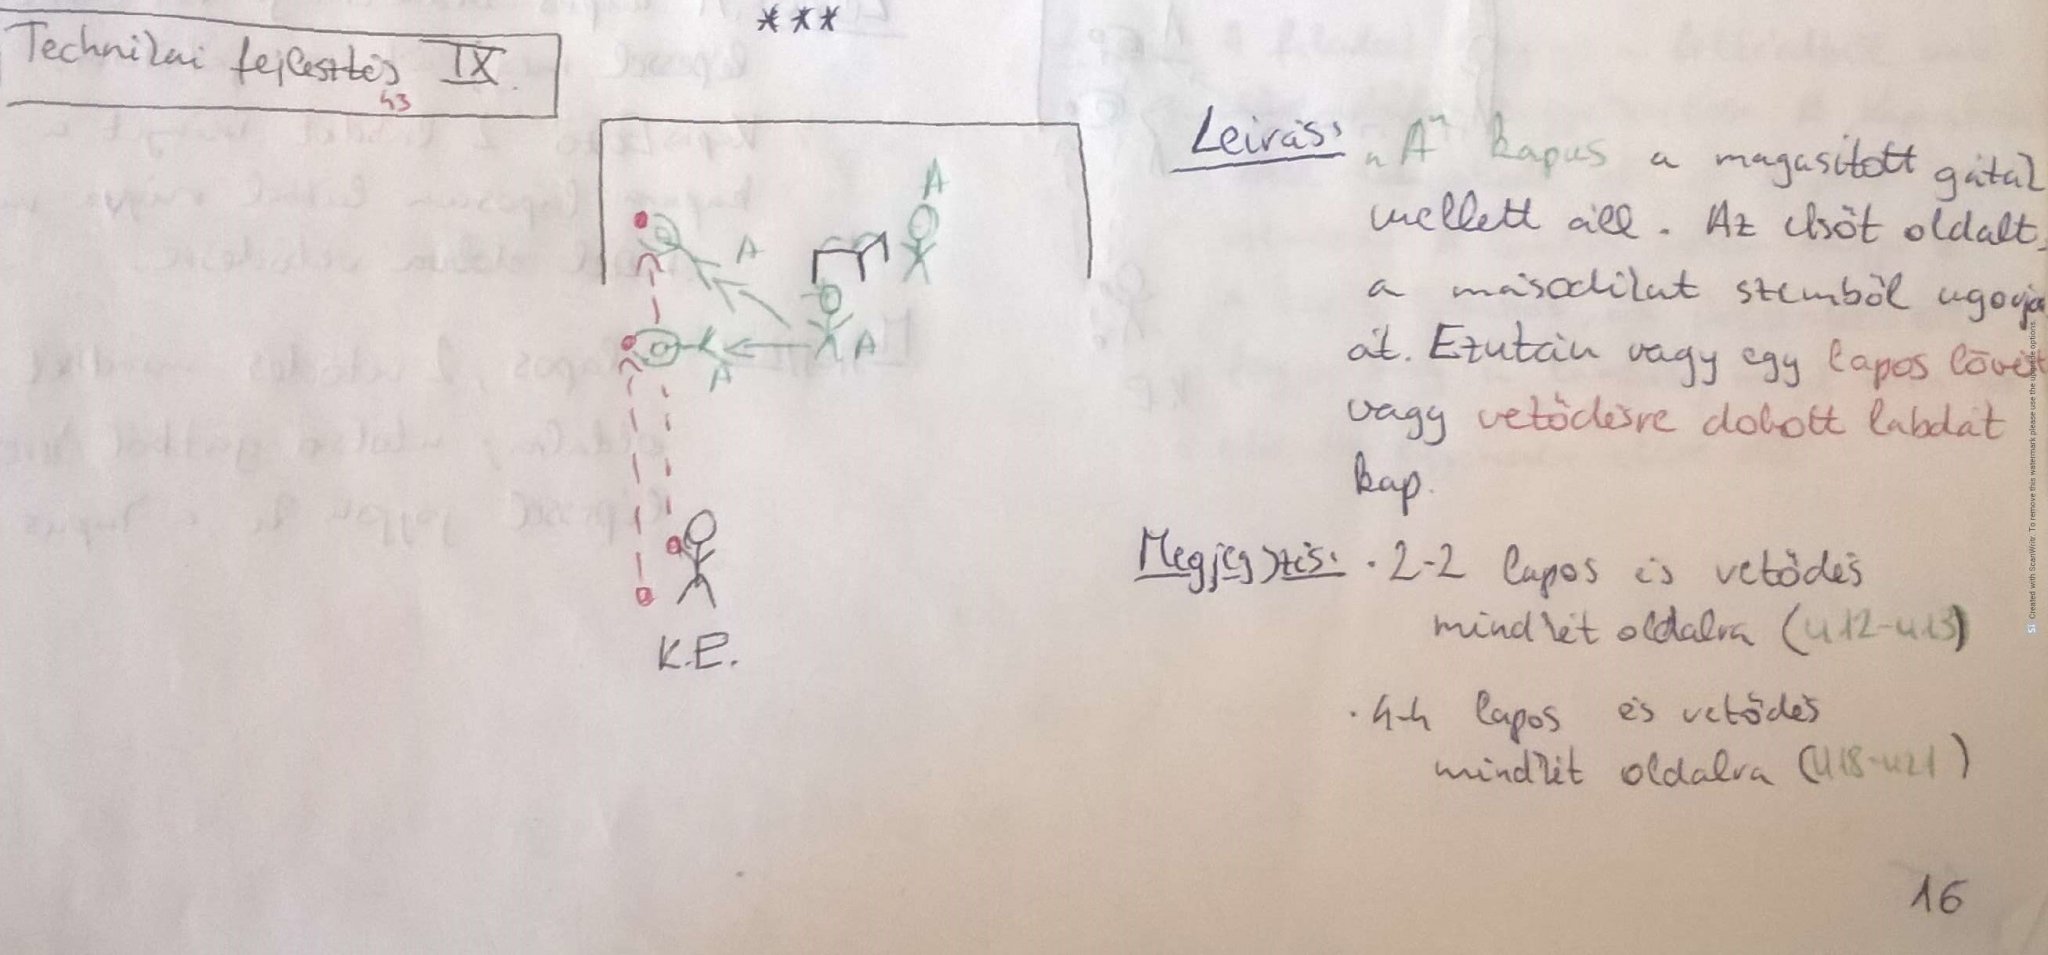 ***
Technikai fejlesztés IX.
43
Leírás: "A" kapus a magasított gátak
mellett áll. Az elsőt oldalt,
a másodikat szemből ugorja
át. Ezután vagy egy lapos lövést
vagy vetődésre dobott labdát
kap.
Megjegyzés: · 2-2 lapos és vetődés
mindkét oldalra (U12-U13)
· 4-4 lapos és vetődés
mindkét oldalra (U18-U21)
A
A
A
A
K.E.
16
Created with ScanWritr. To remove this watermark please use the upgrade options.